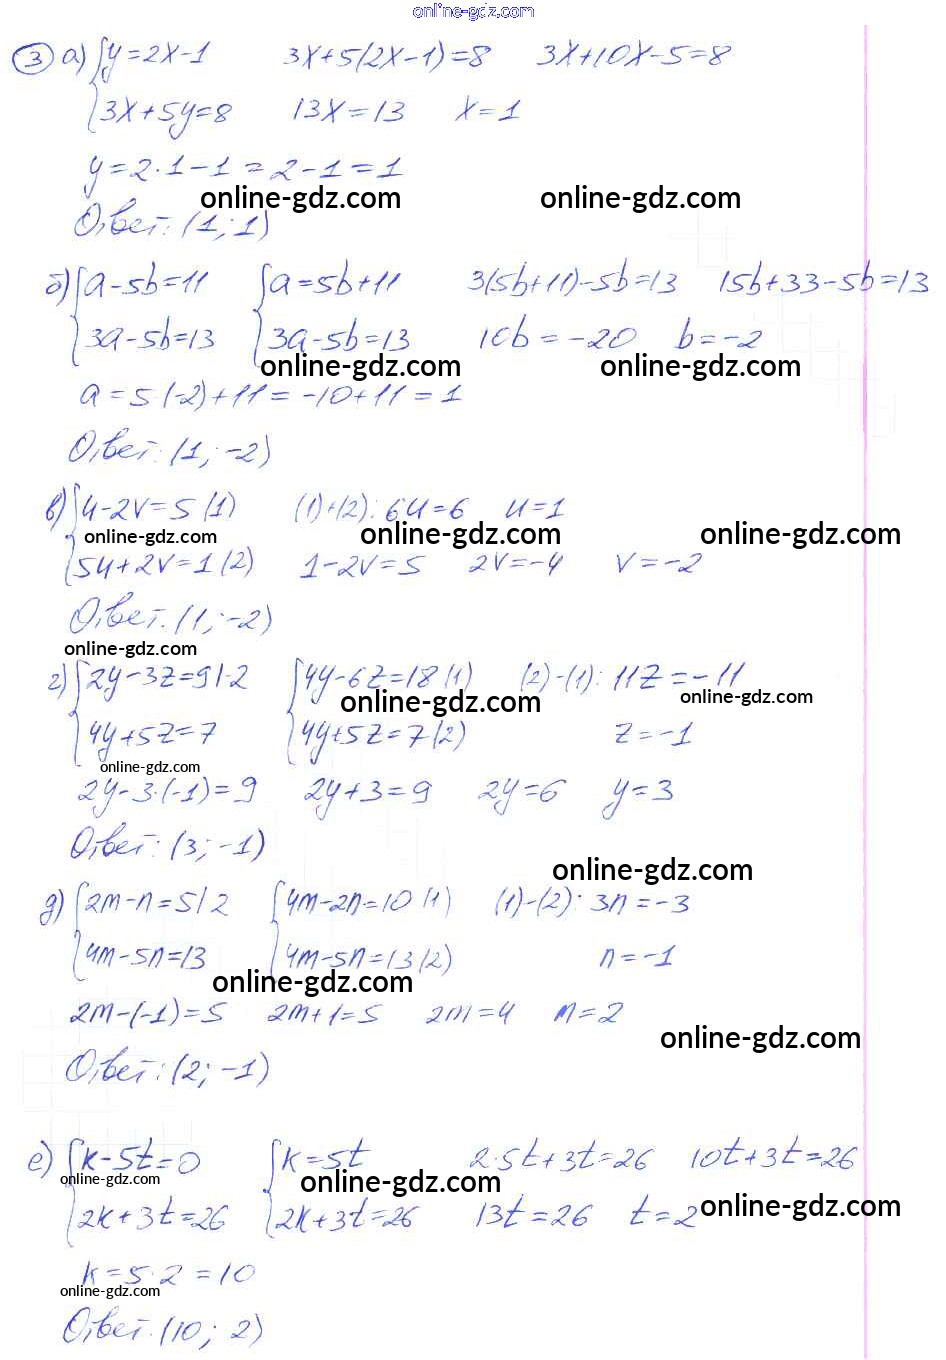 online-gdz.com
3 а) { y=2x-1 3x+5(2x-1)=8 3x+10x-5=8
3x+5y=8 13x=13 x=1
y=2·1-1=2-1=1
online-gdz.com online-gdz.com
Ответ: (1; 1)
б) { a-5b=11 { a=5b+11 3(5b+11)-5b=13 15b+33-5b=13
3a-5b=13 3a-5b=13 10b=-20 b=-2
online-gdz.com online-gdz.com
a=5·(-2)+11=-10+11=1
Ответ: (1; -2)
в) { u-2v=5 (1) (1)+(2): 6u=6 u=1
online-gdz.com online-gdz.com online-gdz.com
5u+2v=1 (2) 1-2v=5 2v=-4 v=-2
Ответ: (1; -2)
online-gdz.com
г) { 2y-3z=9 |·2 { 4y-6z=18 (1) (2)-(1): 11z=-11
online-gdz.com online-gdz.com
4y+5z=7 4y+5z=7 (2) z=-1
online-gdz.com
2y-3·(-1)=9 2y+3=9 2y=6 y=3
Ответ: (3; -1)
online-gdz.com
д) { 2m-n=5 |·2 { 4m-2n=10 (1) (1)-(2): 3n=-3
4m-5n=13 4m-5n=13 (2) n=-1
online-gdz.com
2m-(-1)=5 2m+1=5 2m=4 m=2
online-gdz.com
Ответ: (2; -1)
е) { k-5t=0 { k=5t 2·5t+3t=26 10t+3t=26
online-gdz.com online-gdz.com
2k+3t=26 2k+3t=26 13t=26 t=2
online-gdz.com
k=5·2=10
online-gdz.com
Ответ: (10; 2)